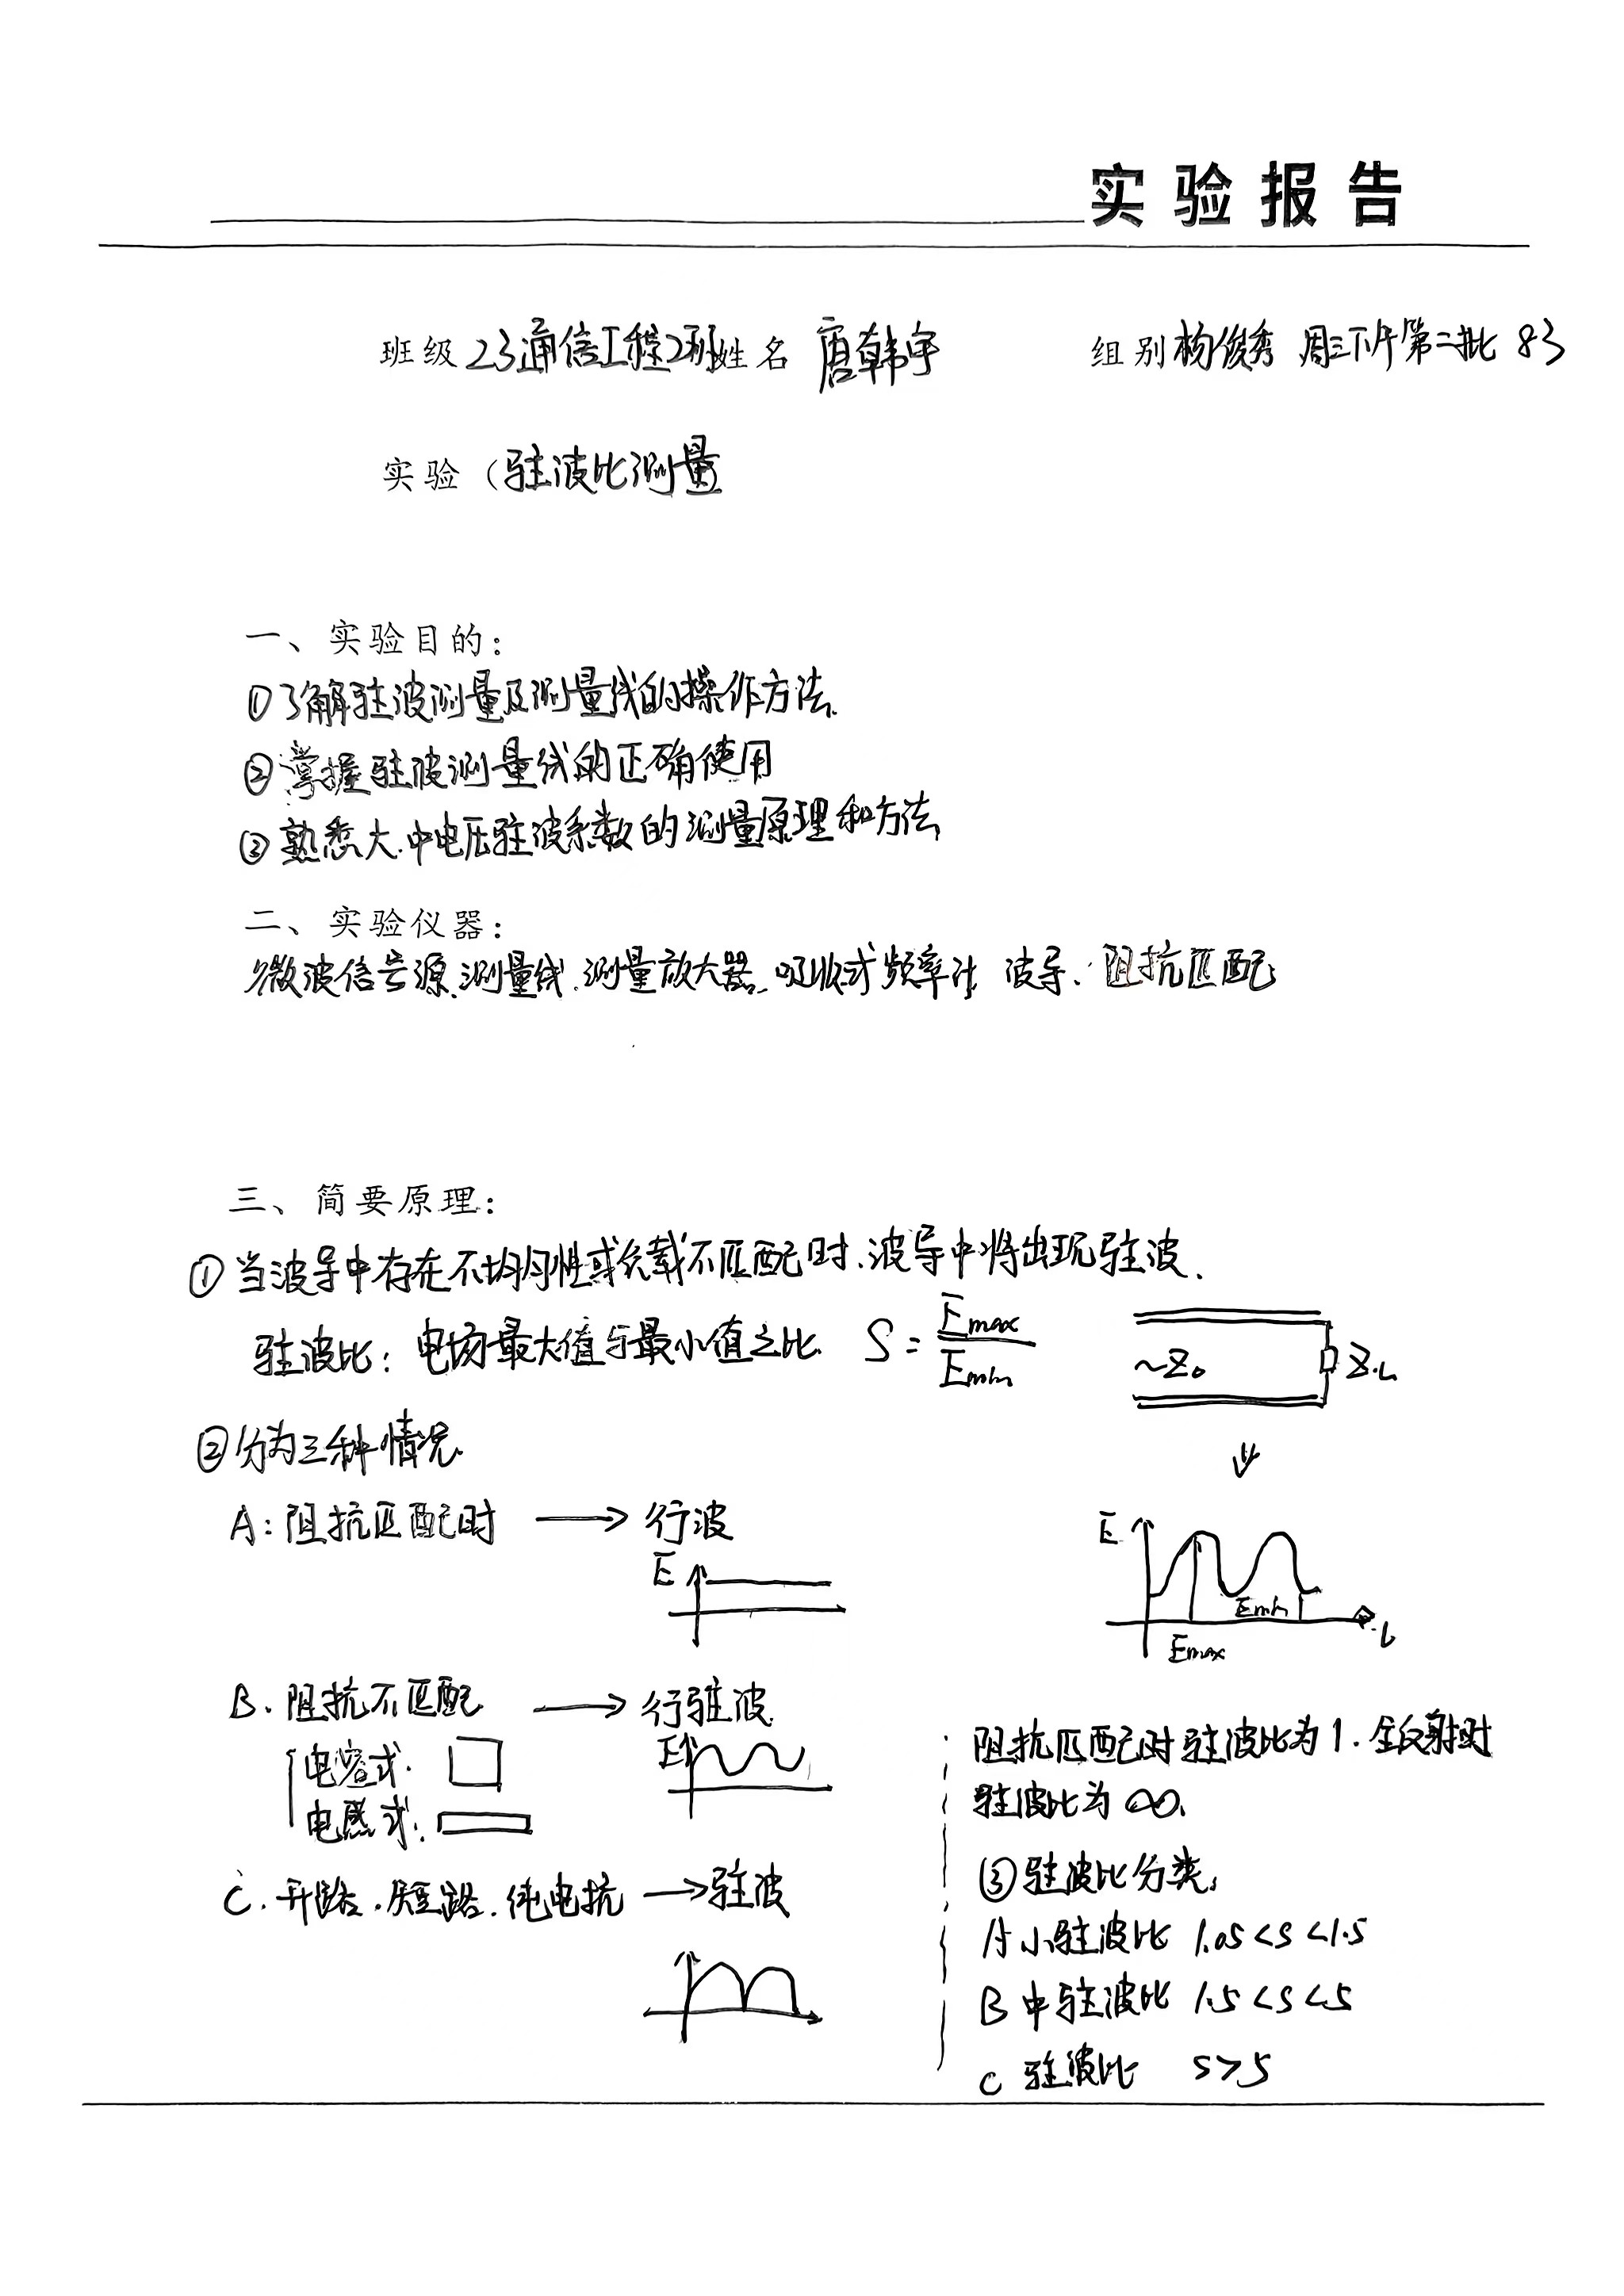 实验报告
班级 23通信工程2班 姓名 唐韩宇 组别 杨俊秀 周三下午第二批 83
实验（驻波比测量
一、实验目的：
①了解驻波测量及测量线的操作方法.
②掌握驻波测量线的正确使用
③熟悉大.中电压驻波系数的测量原理和方法
二、实验仪器：
微波信号源.测量线.测量放大器.吸收式频率计 波导.阻抗匹配
三、简要原理：
①当波导中存在不均匀性或负载不匹配时.波导中将出现驻波.
驻波比：电场最大值与最小值之比. S = Emax / Emin
~Z₀ ZL
②分为三种情况.
A：阻抗匹配时 → 行波
E
E
Emin
Emax
L
B. 阻抗不匹配 → 行驻波.
电容式.
E
电感式.
C. 开路.短路.纯电抗 → 驻波
阻抗匹配时驻波比为1.全反射时
驻波比为∞.
③驻波比分类.
A 小驻波比 1.05<S<1.5
B 中驻波比 1.5<S<5
C 驻波比 S>5